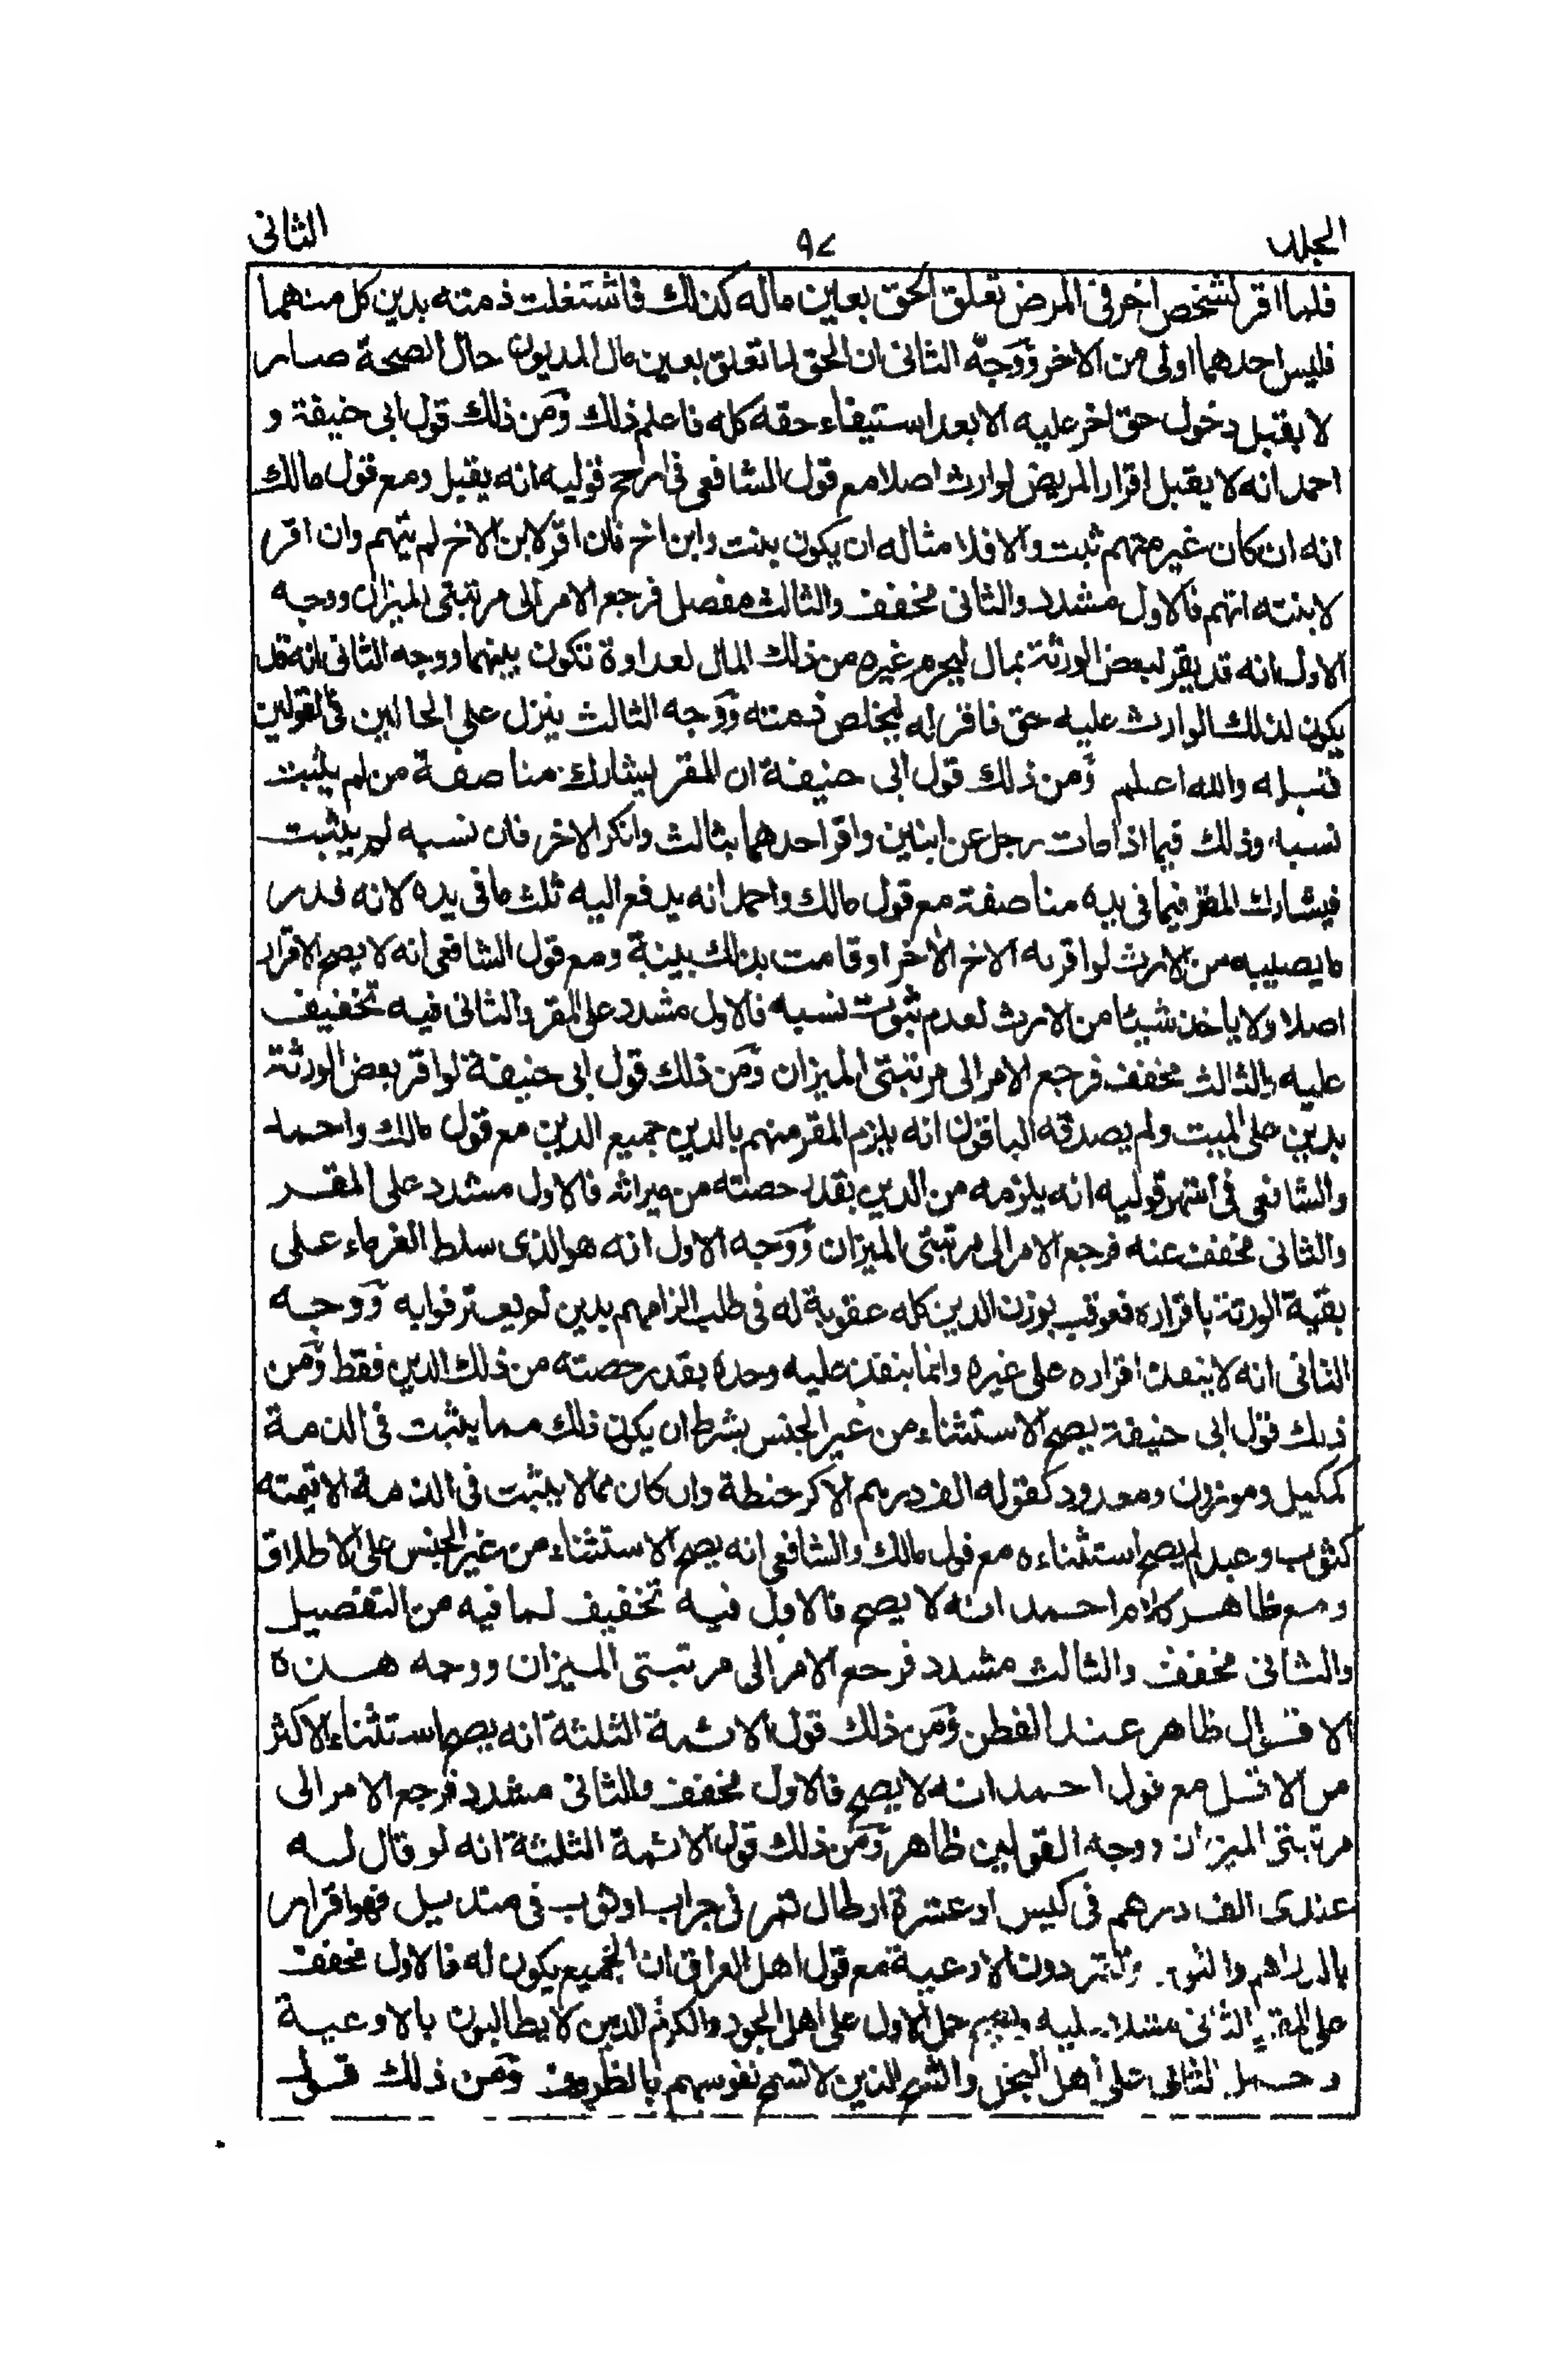 المجلد
٩٧
الثانى
فلما اقر لشخص اخر فى المرض تعلق الحق بعين ماله كذلك فاشتغلت ذمته بدين كل منهما
فليس احدهما اولى من الاخر ووجه الثانى ان الحق لما تعلق بعين مال المديون حال الصحة صار
لا يقبل دخول حق اخر عليه الا بعد استيفاء حقه كله فاعلم ذلك ومن ذلك قول ابى حنيفة و
احمد انه لا يقبل اقرار المريض لوارث اصلا مع قول الشافعى فى ارجح قوليه انه يقبل ومع قول مالك
انه ان كان غير متهم ثبت والا فلا مثاله ان يكون بنت وابن اخ فان اقر لابن الاخ لم يتهم وان اقر
لابنته اتهم فالاول مشدد والثانى مخفف والثالث مفصل فرجع الامر الى مرتبتى الميزان ووجه
الاول انه قد يقر لبعض الورثة بمال ليحرم غيره من ذلك المال لعداوة تكون بينهما ووجه الثانى انه قد
يكون لذلك الوارث عليه حق فاقر له ليخلص ذمته ووجه الثالث ينزل على الحالين فى القولين
قبله والله اعلم ومن ذلك قول ابى حنيفة ان المقر يشارك مناصفة من لم يثبت
نسبه وذلك فيما اذا مات رجل عن ابنين واقر احدهما بثالث وانكر الاخر فان نسبه لم يثبت
فيشارك المقر فيما فى يده مناصفة مع قول مالك واحمد انه يدفع اليه ثلث ما فى يده لانه قدر
ما يصيبه من الارث لو اقر به الاخ الاخر او قامت بذلك بينة ومع قول الشافعى انه لا يصح الاقرار
اصلا ولا ياخذ شيئا من الارث لعدم ثبوت نسبه فالاول مشدد على المقر والثانى فيه تخفيف
عليه والثالث مخفف فرجع الامر الى مرتبتى الميزان ومن ذلك قول ابى حنيفة لو اقر بعض الورثة
بدين على الميت ولم يصدقه الباقون انه يلزم المقر منهم بالدين جميع الدين مع قول مالك واحمد
والشافعى فى اشهر قوليه انه يلزمه من الدين بقدر حصته من ميراثه فالاول مشدد على المقر
والثانى مخفف عنه فرجع الامر الى مرتبتى الميزان ووجه الاول انه هو الذى سلط الغرماء على
بقية الورثة باقراره فعوقب بوزن الدين كله عقوبة له فى طلب الزامهم بدين لم يعترفوا به ووجه
الثانى انه لا ينفذ اقراره على غيره وانما ينفذ عليه وحده بقدر حصته من ذلك الدين فقط ومن
ذلك قول ابى حنيفة يصح الاستثناء من غير الجنس بشرط ان يكون ذلك مما يثبت فى الذمة
كمكيل وموزون ومعدود كقوله الف درهم الا كر حنطة وان كان مما لا يثبت فى الذمة الا قيمته
كثوب وعبد لم يصح استثناءه مع قول مالك والشافعى انه يصح الاستثناء من غير الجنس على الاطلاق
ومع ظاهر كلام احمد انه لا يصح فالاول فيه تخفيف لما فيه من التفصيل
والثانى مخفف والثالث مشدد فرجع الامر الى مرتبتى الميزان ووجه هذه
الاقوال ظاهر عند الفطن ومن ذلك قول الائمة الثلثة انه يصح استثناء الاكثر
من الاقل مع قول احمد انه لا يصح فالاول مخفف والثانى مشدد فرجع الامر الى
مرتبتى الميزان ووجه القولين ظاهر ومن ذلك قول الائمة الثلثة انه لو قال له
عندى الف درهم فى كيس او عشرة ارطال تمر فى جراب او ثوب فى منديل فهو اقرار
بالدراهم والتمر دون الاوعية مع قول اهل العراق ان الجميع يكون له فالاول مخفف
على المقر والثانى مشدد عليه ويصح حمل الاول على اهل الجود والكرم الذين لا يطالبون بالاوعية
وحمل الثانى على اهل البخل والشح الذين لا تسمح نفوسهم بالظروف ومن ذلك قول